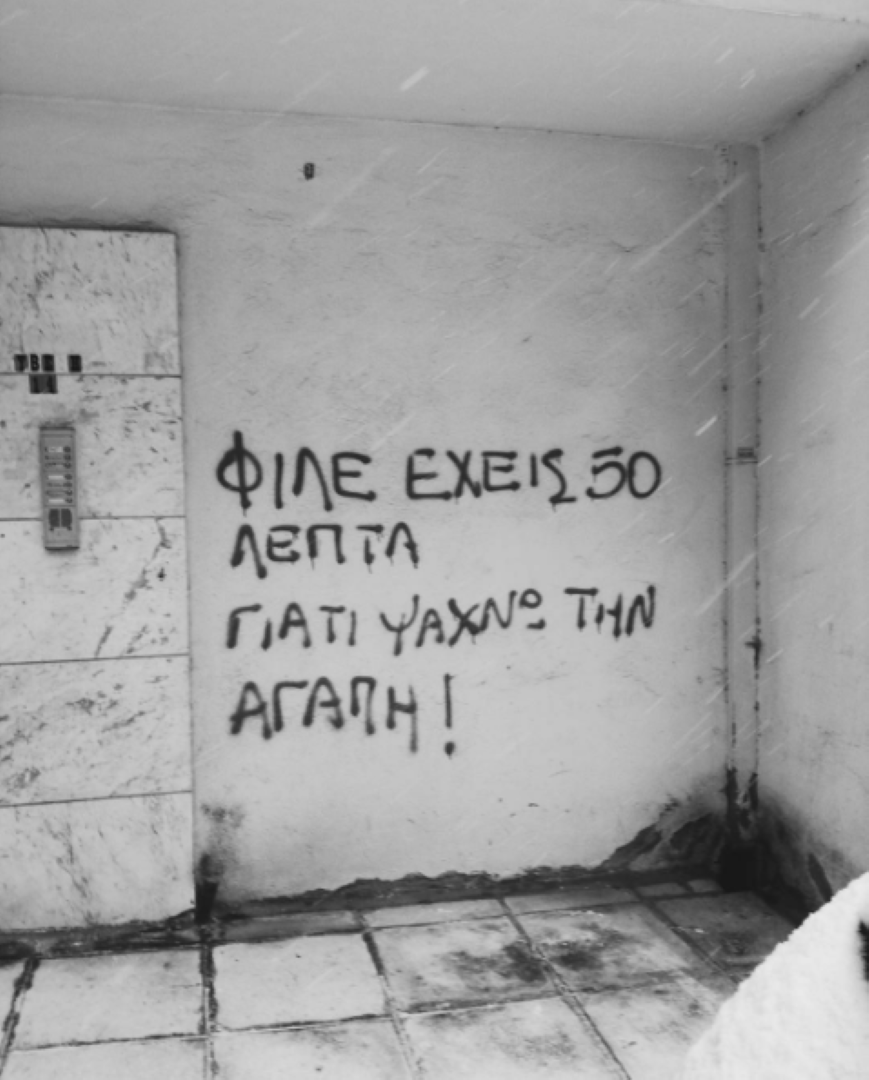 ΦΙΛΕ ΕΧΕΙΣ 50
ΛΕΠΤΑ
ΓΙΑΤΙ ΨΑΧΝΩ ΤΗΝ
ΑΓΑΠΗ!